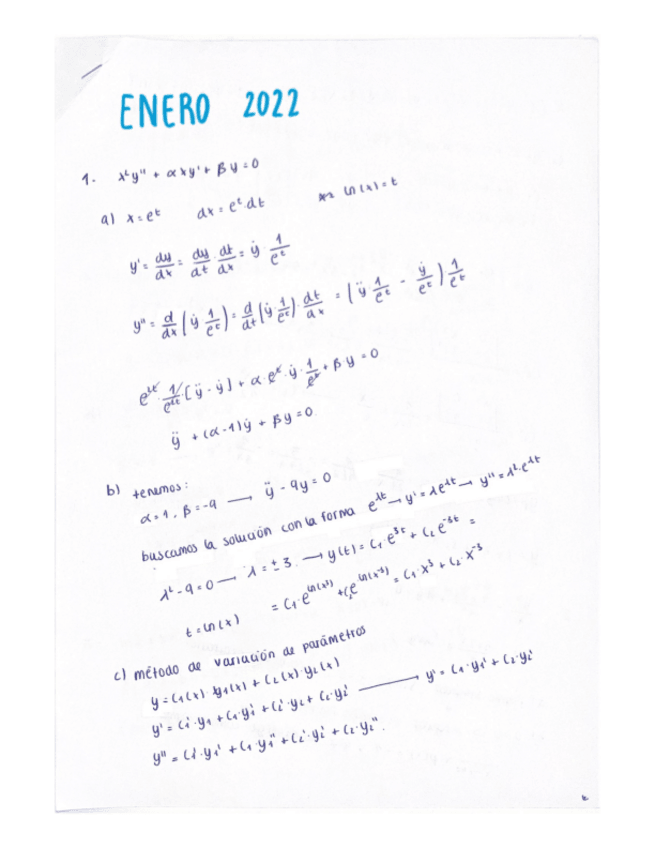 ENERO 2022
1. x²y'' + αxy' + βy = 0
a) x = eᵗ dx = eᵗ·dt ln(x) = t
y' = dy/dx = dy/dt · dt/dx = ẏ · 1/eᵗ
y'' = d/dx (ẏ 1/eᵗ) = d/dt (ẏ · 1/eᵗ) · dt/dx = (ÿ · 1/eᵗ - ẏ/eᵗ) 1/eᵗ
e²ᵗ · 1/e²ᵗ · [ÿ - ẏ] + α · eᵗ · ẏ · 1/eᵗ + βy = 0
ÿ + (α-1)ẏ + βy = 0
b) tenemos:
α = 1, β = -9 → ÿ - 9y = 0
buscamos la solución con la forma e^λt → y' = λe^λt → y'' = λ²·e^λt
λ² - 9 = 0 → λ = ±3 → y(t) = C₁·e³ᵗ + C₂e⁻³ᵗ =
t = ln(x) = C₁·e^ln(x³) + C₂e^ln(x⁻³) = C₁·x³ + C₂·x⁻³
c) método de variación de parámetros
y = C₁(x)·y₁(x) + C₂(x)·y₂(x)
y' = C₁'·y₁ + C₁·y₁' + C₂'·y₂ + C₂·y₂' → y' = C₁·y₁' + C₂·y₂'
y'' = C₁'·y₁' + C₁·y₁'' + C₂'·y₂' + C₂·y₂''.